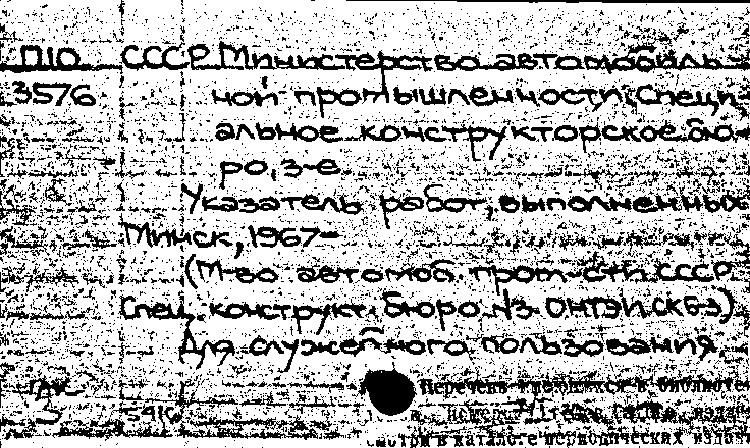 П10 СССР Министерство автомобиль-
3576 ной промышленности. Специ-
альное конструкторское бю-
ро, 3-е
Указатель работ, выполненных
Минск, 1967-
(М-во автомоб. пром-сти СССР
Спец. конструкт. бюро №3. ОНТЭИ СКБ-3)
Для служебного пользования.
Перечень имеющихся в библиоте
смотри в каталоге периодических издан